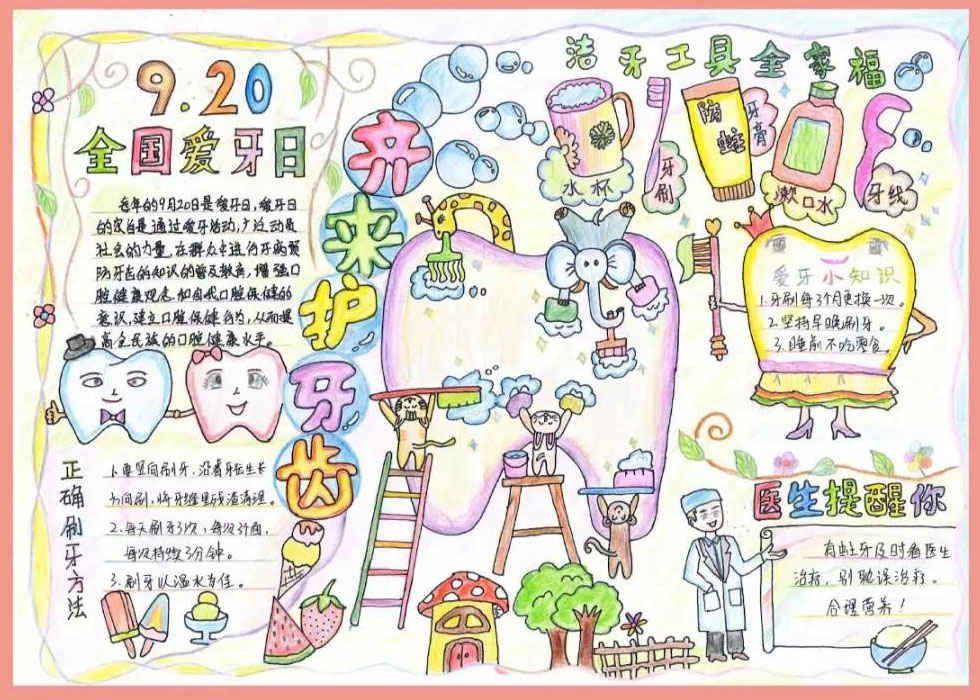 9.20
全国爱牙日
每年的9月20日是爱牙日,爱牙日
的宗旨是通过爱牙活动,广泛动员
社会的力量,在群众中进行牙病预
防牙齿的知识的普及教育,增强口
腔健康观念,加自我口腔保健的
意识,建立口腔保健行为,从而提
高全民族的口腔健康水平。
齐来护牙齿
洁牙工具全家福
水杯
牙刷
防蛀
牙膏
漱口水
牙线
爱牙小知识
1.牙刷每3个月更换一次。
2.坚持早晚刷牙。
3.睡前不吃零食。
正确刷牙方法
1.要竖向刷牙,沿着牙齿生长
方向刷,将牙缝里残渣清理。
2.每天刷牙3次,每次3个面,
每次持续3分钟。
3.刷牙以温水为佳。
医生提醒你
有蛀牙及时看医生
治疗,别耽误治疗。
合理营养!